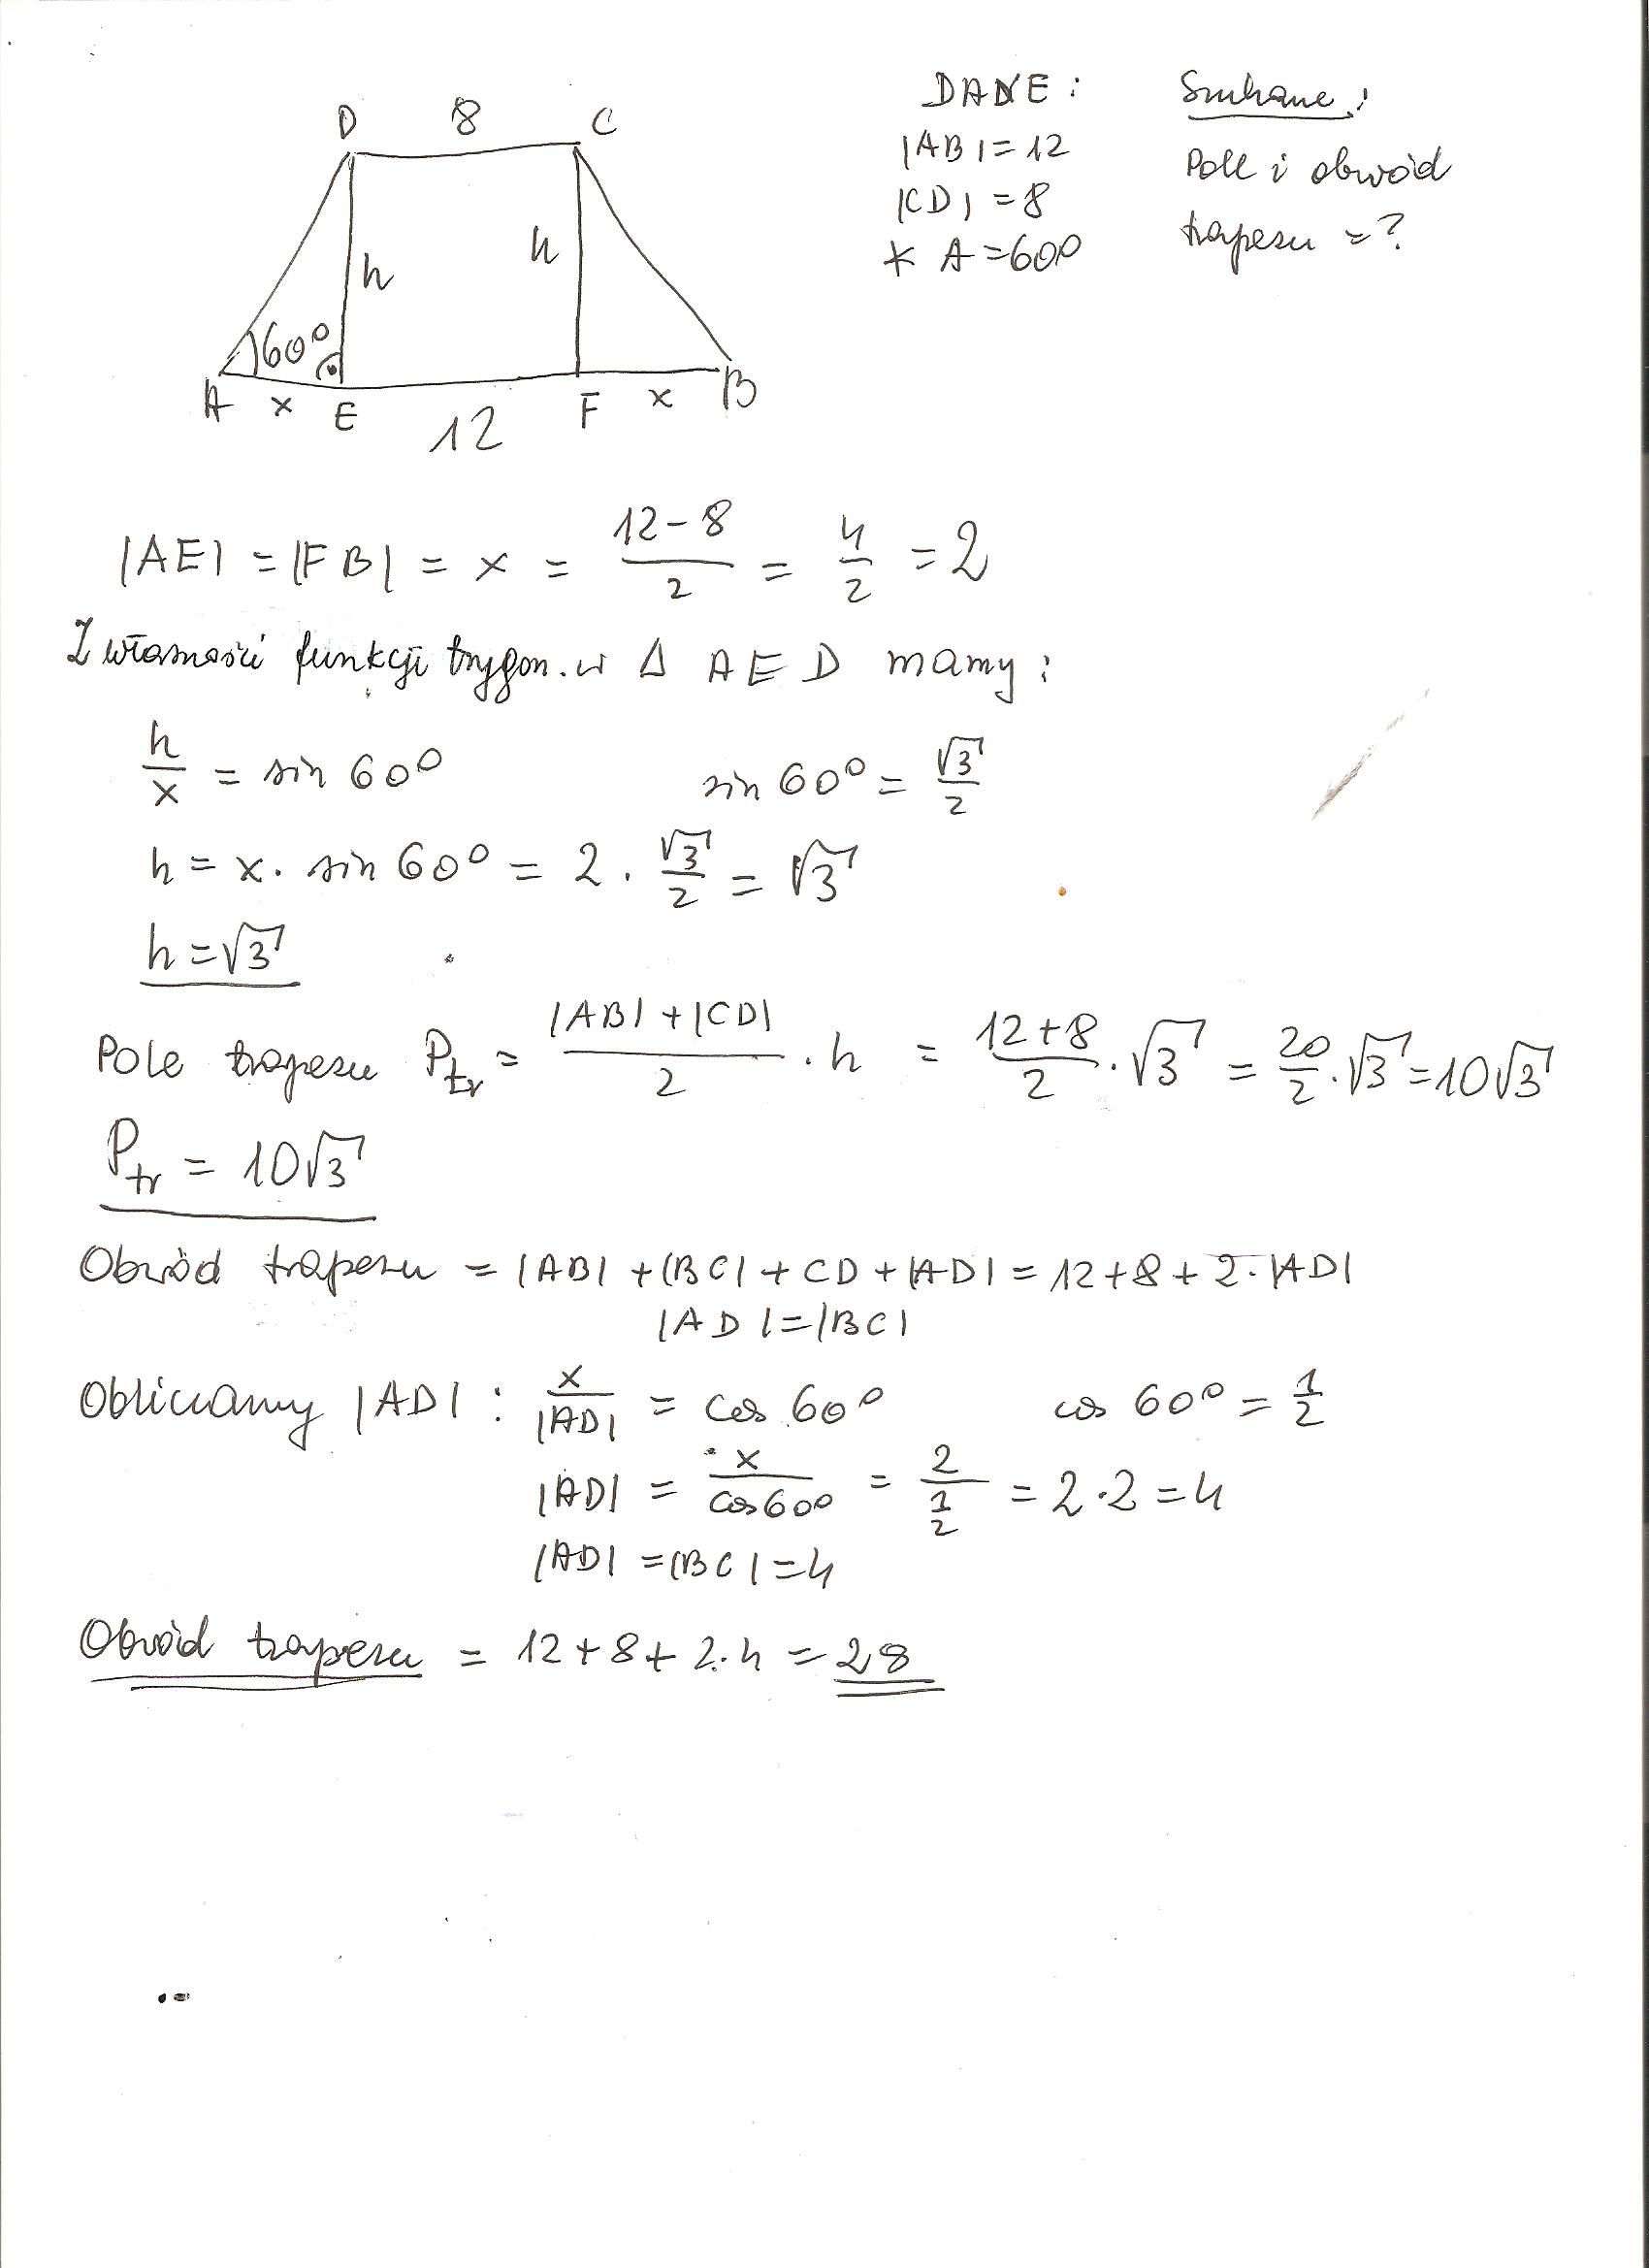 D 8 C
DANE:
|AB|=12
|CD|=8
∢ A=60°
Szukane:
Pole i obwód
trapezu =?
h h
60°
A x E 12 F x B
|AE| = |FB| = x = \frac{12-8}{2} = \frac{4}{2} = 2
Z własności funkcji trygon. w Δ AED mamy:
\frac{h}{x} = sin 60° sin 60° = \frac{√3}{2}
h = x · sin 60° = 2 · \frac{√3}{2} = √3
h = √3
Pole trapezu P_{tr} = \frac{|AB|+|CD|}{2} · h = \frac{12+8}{2} · √3 = \frac{20}{2} · √3 = 10√3
P_{tr} = 10√3
Obwód trapezu = |AB| + |BC| + CD + |AD| = 12+8+2·|AD|
|AD| = |BC|
Obliczamy |AD| : \frac{x}{|AD|} = cos 60° cos 60° = \frac{1}{2}
|AD| = \frac{x}{cos 60°} = \frac{2}{\frac{1}{2}} = 2·2 = 4
|AD| = |BC| = 4
Obwód trapezu = 12+8+2·4 = 28